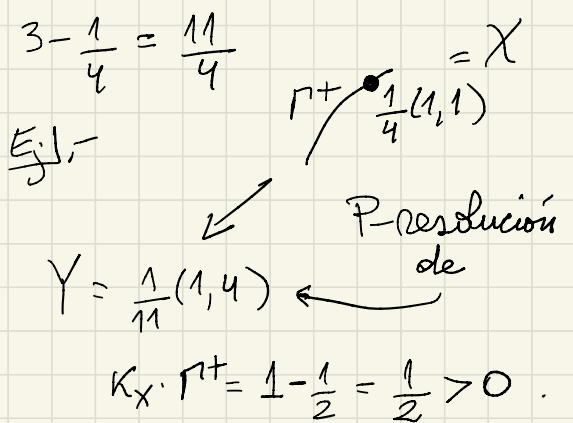 3 - 1/4 = 11/4
= X
Γ+ 1/4 (1,1)
Ej.-
P-resolución
de
Y = 1/11 (1,4)
K_X · Γ+ = 1 - 1/2 = 1/2 > 0 .